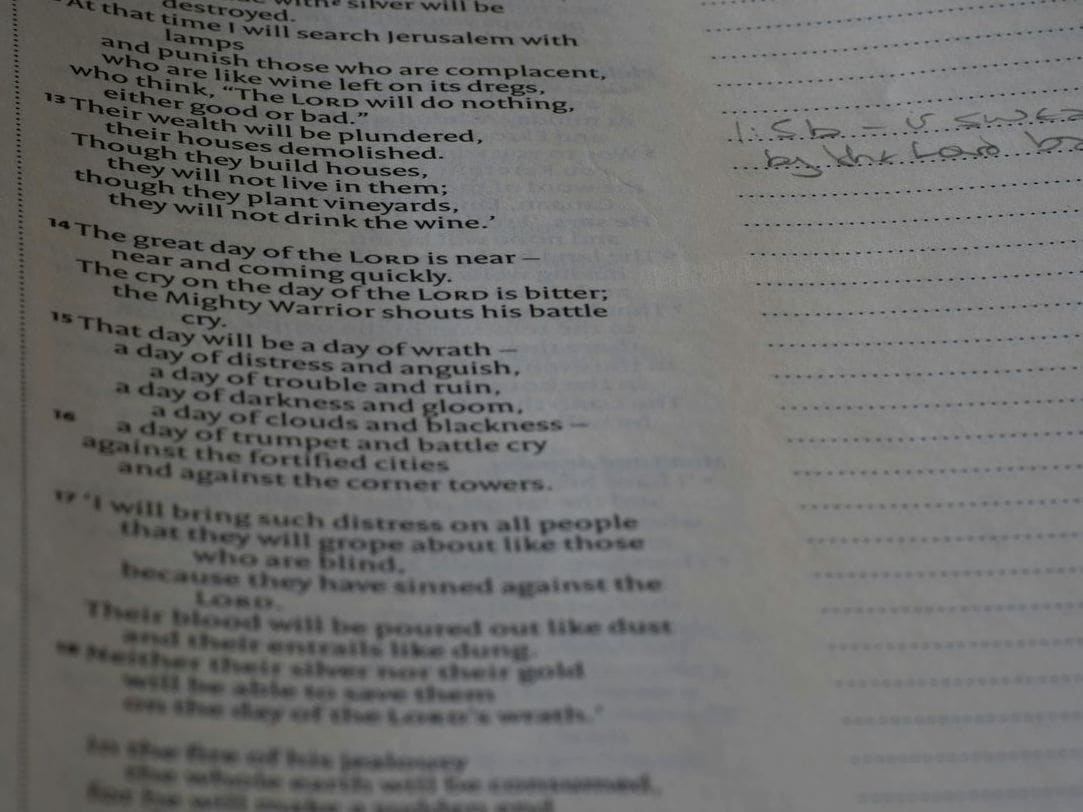 with silver will be
destroyed.
At that time I will search Jerusalem with
lamps
and punish those who are complacent,
who are like wine left on its dregs,
who think, “The LORD will do nothing,
either good or bad.”
13 Their wealth will be plundered,
their houses demolished.
Though they build houses,
they will not live in them;
though they plant vineyards,
they will not drink the wine.’
14 The great day of the LORD is near –
near and coming quickly.
The cry on the day of the LORD is bitter;
the Mighty Warrior shouts his battle
cry.
15 That day will be a day of wrath –
a day of distress and anguish,
a day of trouble and ruin,
a day of darkness and gloom,
a day of clouds and blackness –
16 a day of trumpet and battle cry
against the fortified cities
and against the corner towers.
17 ‘I will bring such distress on all people
that they will grope about like those
who are blind,
because they have sinned against the
LORD.
Their blood will be poured out like dust
and their entrails like dung.
18 Neither their silver nor their gold
will be able to save them
on the day of the LORD’s wrath.’
In the fire of his jealousy
the whole earth will be consumed,
for he will make a sudden end
1:5b –
by the Lord